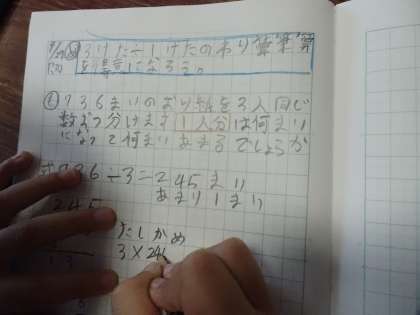 3けた÷1けたのわり算筆算
を得意になろう。
736まいのおり紙を3人同じ
数ずつ分けます1人分は何まい
になって何まいあまるでしょうか
式736÷3=245まい
あまり1まい
245
たしかめ
3×24